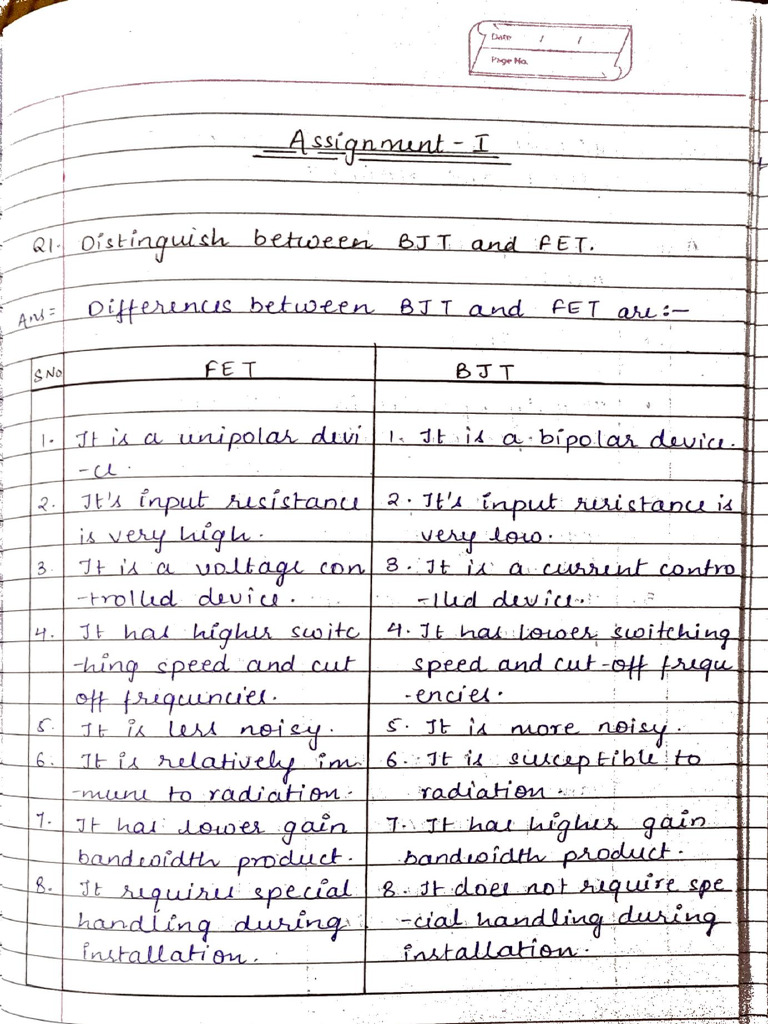 Date / /
Page No.
Assignment - I
Q1. Distinguish between BJT and FET.
Ans= Differences between BJT and FET are :-
S NO FET BJT
1. It is a unipolar devi 1. It is a bipolar device.
-ce.
2. It's input resistance 2. It's input resistance is
is very high. very low.
3. It is a voltage con 3. It is a current contro
-trolled device. -lled device.
4. It has higher switc 4. It has lower switching
-hing speed and cut speed and cut-off frequ
off frequencies. -encies.
5. It is less noisy. 5. It is more noisy.
6. It is relatively im 6. It is susceptible to
-mune to radiation. radiation.
7. It has lower gain 7. It has higher gain
bandwidth product. bandwidth product.
8. It requires special 8. It does not require spe
handling during -cial handling during
installation. installation.